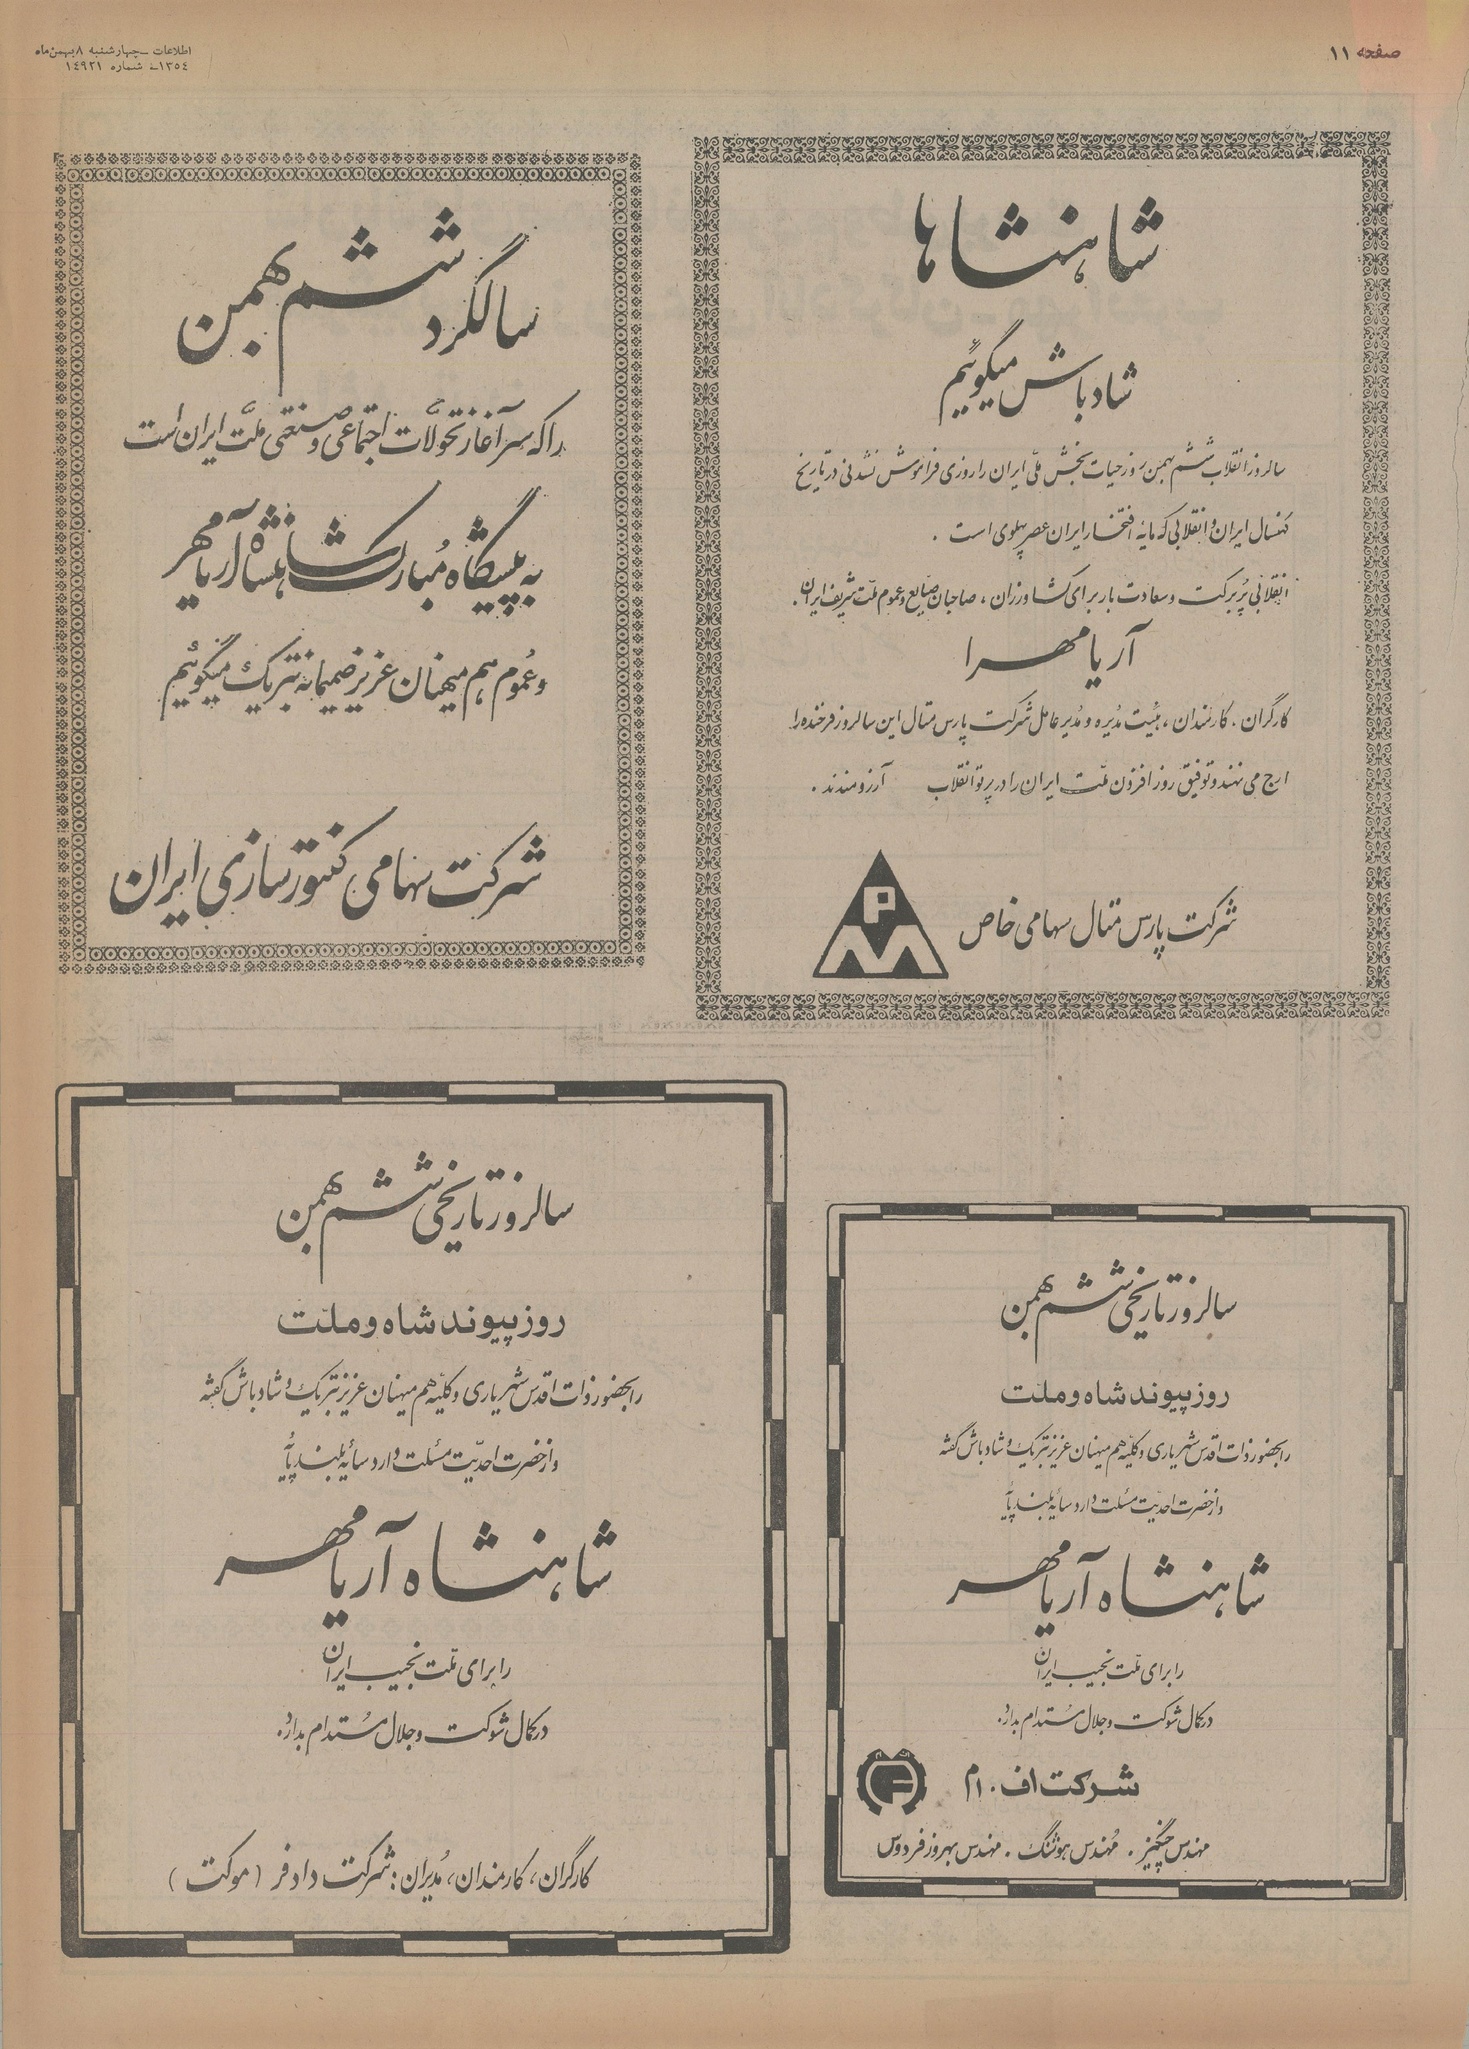 صفحه ۱۱
اطلاعات ـ چهارشنبه ۸ بهمن ماه
۱۳۵٤ـ شماره ۱٤۹۲۱
شاهنشاها
شادباش میگوئیم
سالروز انقلاب ششم بهمن روز حیات بخش ملی ایران را روزی فراموش نشدنی در تاریخ
کهنسال ایران و انقلابی که مایهٔ افتخار ایران عصر پهلوی است .
انقلابی پُربرکت و سعادت بار برای کشاورزان ، صاحبان صنایع و عموم ملت شریف ایران .
آریامهرا
کارگران . کارمندان ، هیئت مدیره و مدیر عامل شرکت پارس متال این سالروز فرخنده را
ارج می نهند و توفیق روز افزون ملّت ایران را در پرتو انقلاب آرزومندند .
شرکت پارس متال سهامی خاص
PM
سالگرد ششم بهمن
را که سرآغاز تحولات اجتماعی و صنعتی ملّت ایران است
به پیشگاه مُبارک شاهنشاه آریامهر
و عُموم هم میهنان عزیز صمیمانه تبریک میگوئیم
شرکت سهامی کنتورسازی ایران
سالروز تاریخی ششم بهمن
روز پیوند شاه و ملّت
را بحضور ذات اقدس شهریاری و کلیّه هم میهنان عزیز تبریک و شادباش گفته
و از حضرت احدیّت مسئلت دارد سایهٔ بلند پایهٔ
شاهنشاه آریامهر
را برای ملّت نجیب ایران
در کمال شوکت و جلال مُستدام بدارد.
شرکت اف . ام
مهندس چنگیز . مُهندس هوشنگ . مهندس بهروز فردوس
سالروز تاریخی ششم بهمن
روز پیوند شاه و ملّت
را بحضور ذات اقدس شهریاری و کلیّه هم میهنان عزیز تبریک و شادباش گفته
و از حضرت احدیّت مسئلت دارد سایهٔ بلند پایهٔ
شاهنشاه آریامهر
را برای ملّت نجیب ایران
در کمال شوکت و جلال مُستدام بدارد.
کارگران ، کارمندان ، مُدیران : شرکت دادفر ( موکت )